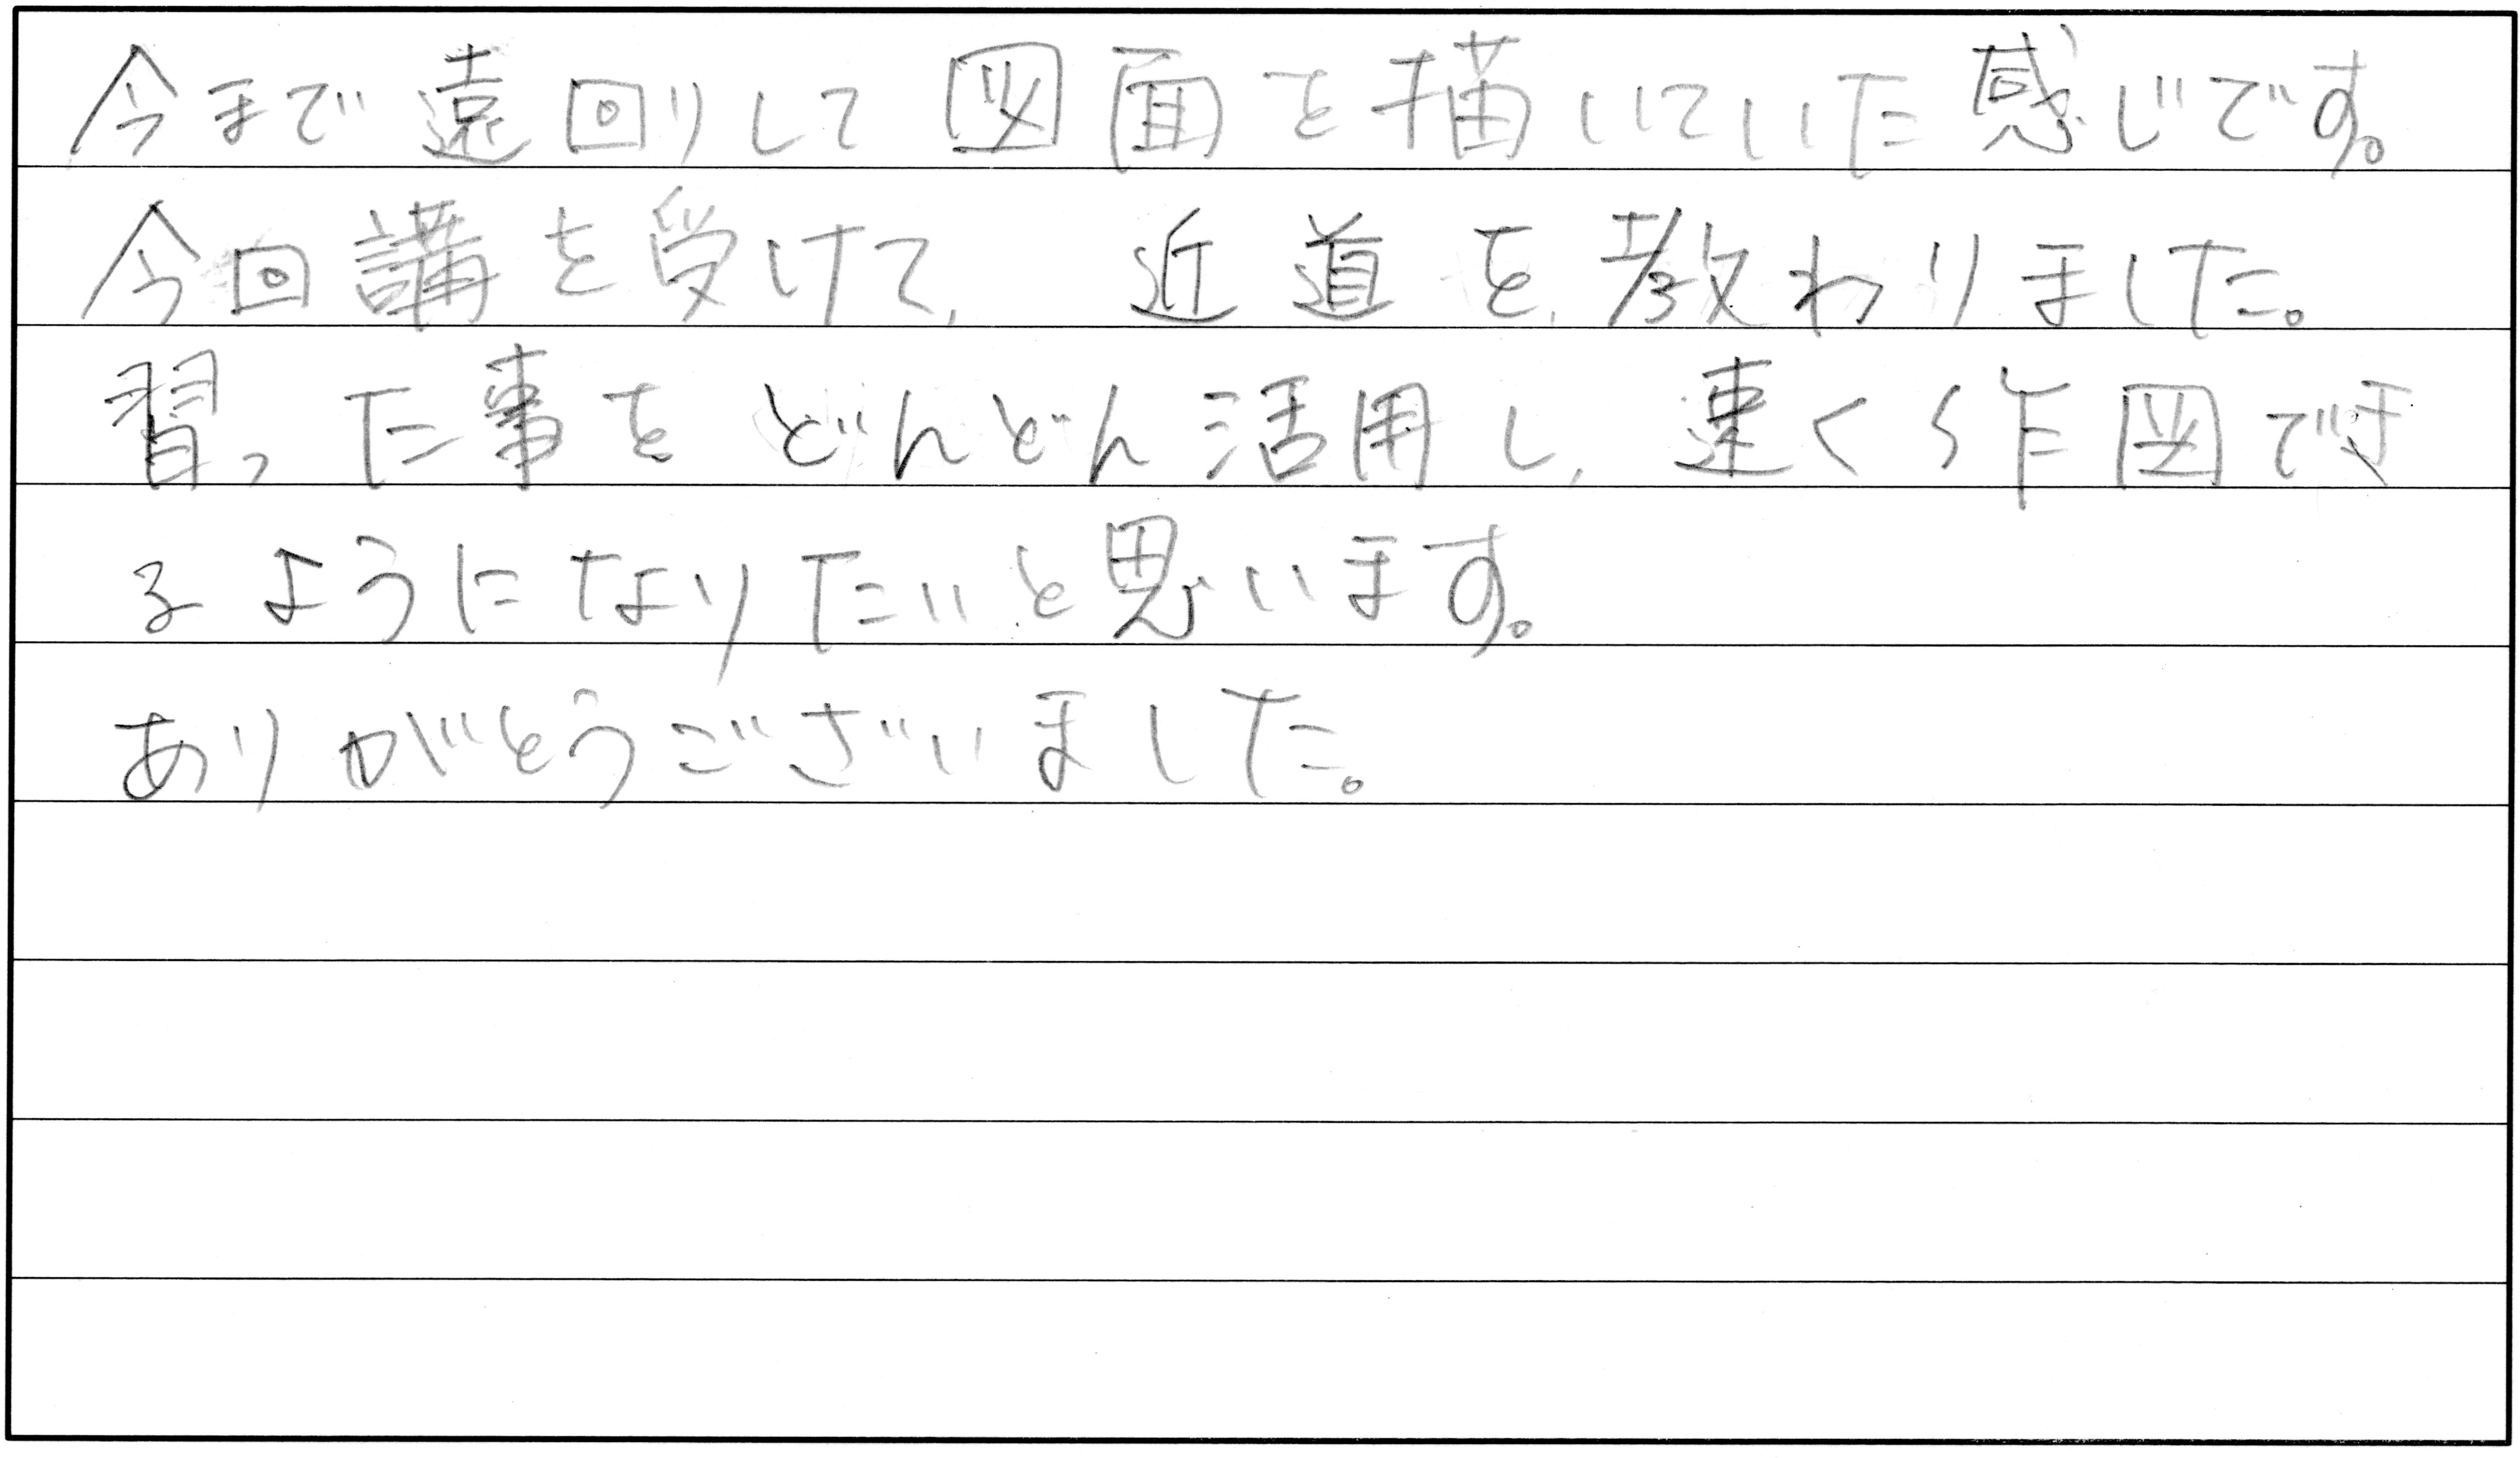 今まで遠回りして図面を描いていた感じです。
今回講を受けて、近道を、教わりました。
習った事をどんどん活用し、速く作図でき
るようになりたいと思います。
ありがとうございました。